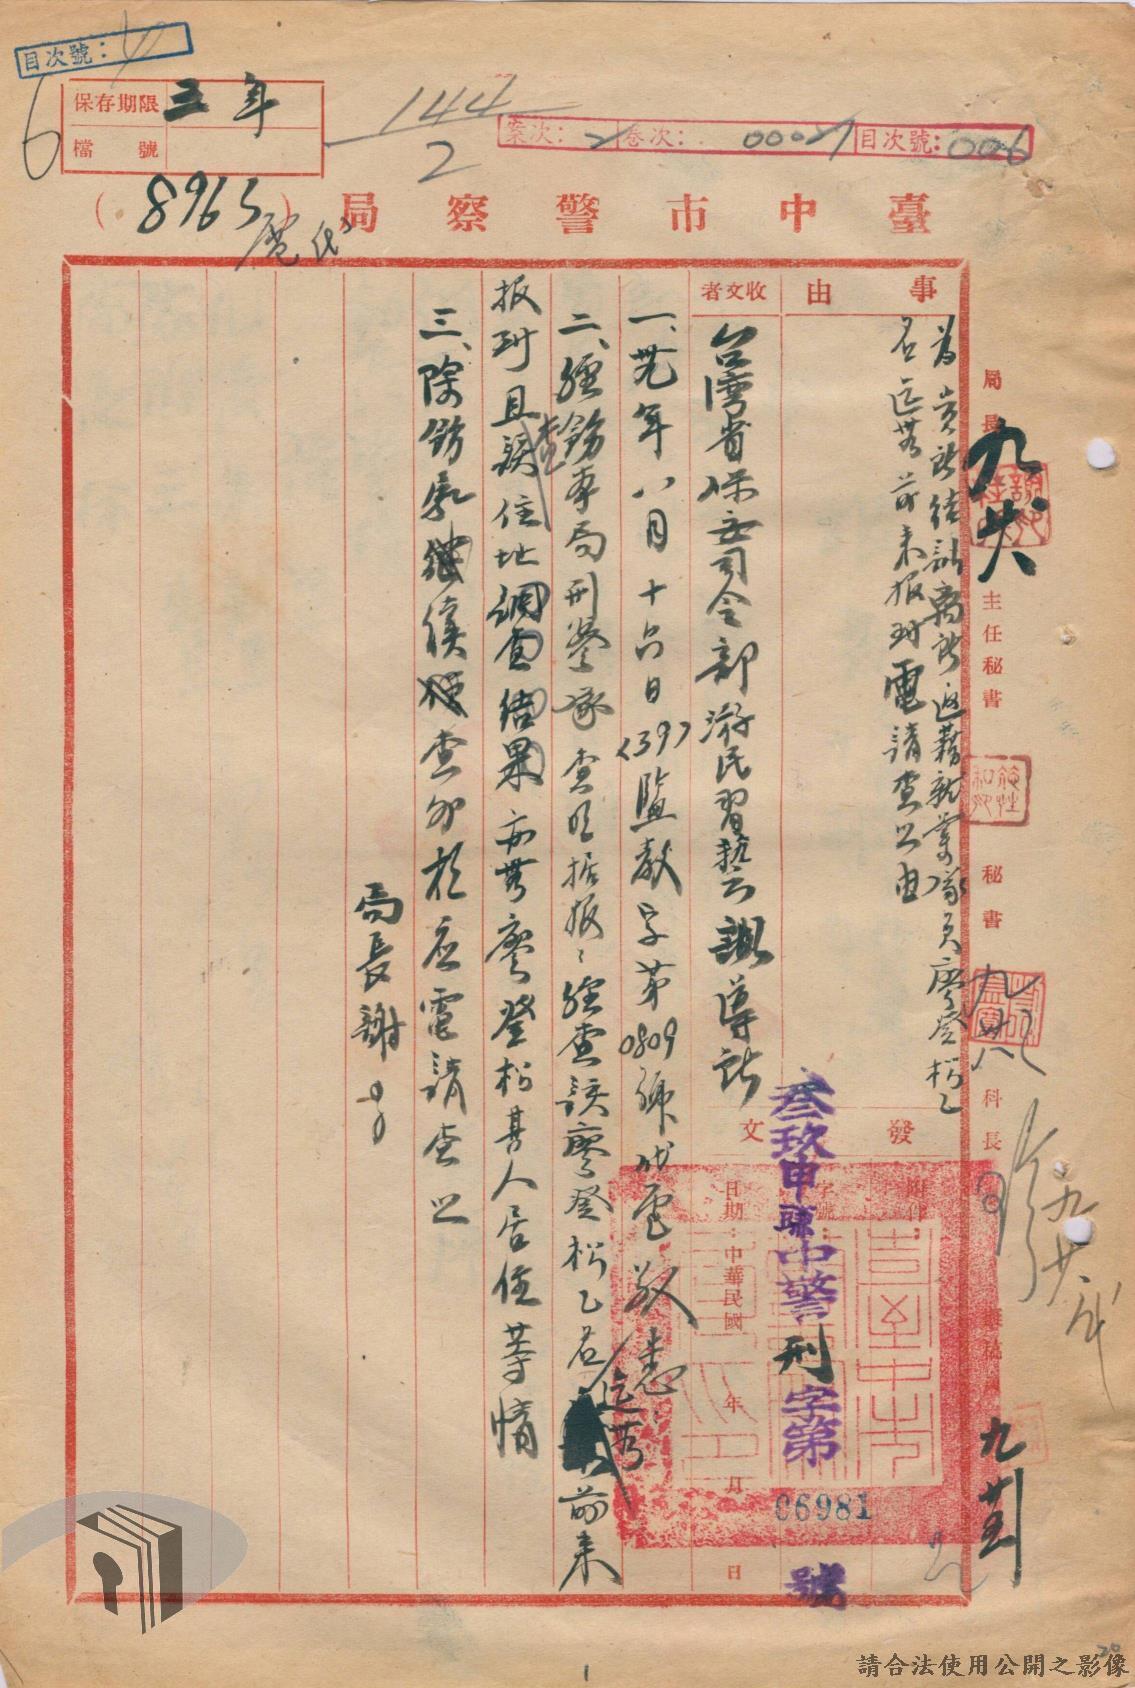 目次號：
保存期限 三年
檔號
144
2
6
案次：2 卷次：00027 目次號：006
臺中市警察局（8965）
代電
事由
為貴所結訓離所返籍就業隊員廖登松乙
名迄無前來報到電請查照由
收文者
台灣省保安司令部游民習藝訓導所
發文
附件
字號：
日期：中華民國 年 月 日
叁玖申 中警刑字第06981號
一、卅九年八月十六日（39）監教字第0809號代電敬悉
二、經飭本局刑警隊查明据报：經查該廖登松乙名迄無前來
报到且該住址調查結果亦無廖登松其人居住等情
三、除飭繼續查外相应電請查照
局長謝
局長
主任秘書
秘書
科長
九廿八
1
20
請合法使用公開之影像